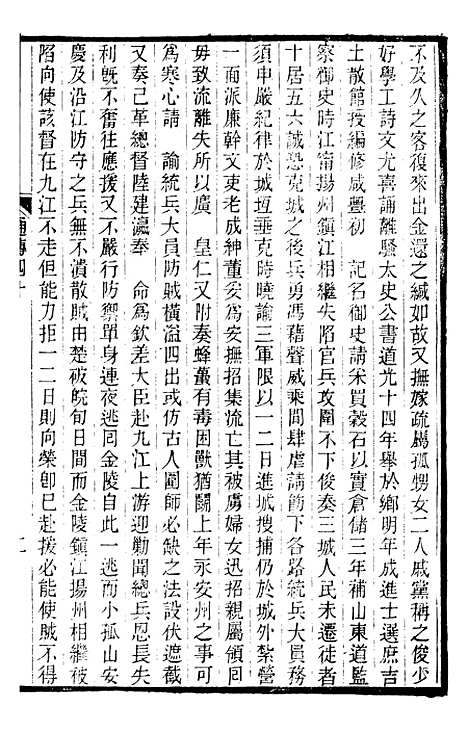 不及久之客復來出金還之緘如故又撫嫁疏屬孤甥女二人戚黨稱之俊少
好學工詩文尤喜誦離騷太史公書道光十四年舉於鄉明年成進士選庶吉
士散館授編修咸豐初　記名御史請采買穀石以實倉儲三年補山東道監
察御史時江甯揚州鎮江相繼失陷官兵攻圍不下俊奏三城人民未遷徙者
十居五六誠恐克城之後兵勇馮藉聲威乘間肆虐請飭下各路統兵大員務
須申嚴紀律於城垣垂克時曉諭三軍限以一二日進城搜捕仍於城外紮營
一面派廉幹文吏老成紳董妥為安撫招集流亡其被虜婦女迅招親屬領囘
毋致流離失所以廣　皇仁又附奏蜂蠆有毒困獸猶鬭上年永安州之事可
為寒心請　諭統兵大員防賊橫溢四出或仿古人圍師必缺之法設伏遮截
又奏己革總督陸建瀛奉　命為欽差大臣赴九江上游迎勦聞總兵恩長失
利旣不奮往應援又不嚴行防禦單身連夜逃囘金陵自此一逃而小孤山安
慶及沿江防守之兵無不潰散賊由楚破皖旬日間而金陵鎮江揚州相繼被
陷向使該督在九江不走但能力拒一二日則向榮卽巳赴援必能使賊不得
傳四十
二